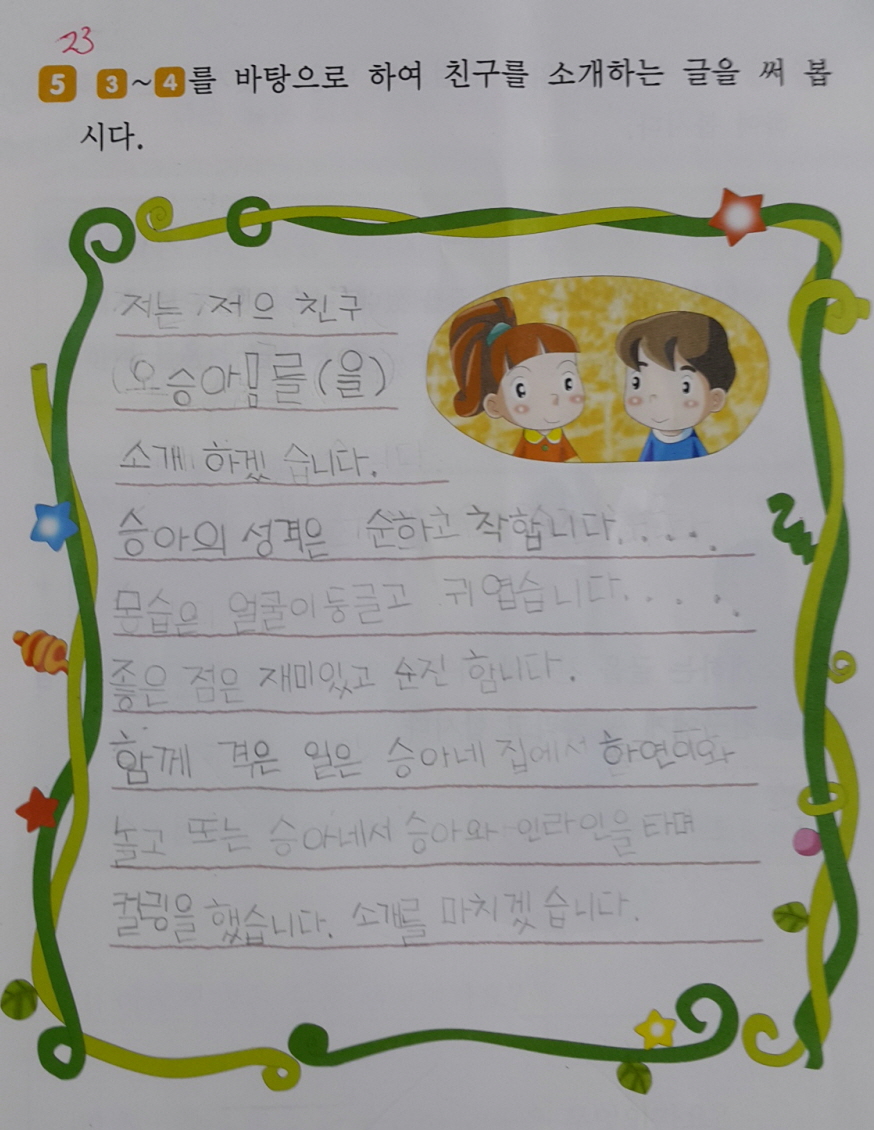 23
5 3~4를 바탕으로 하여 친구를 소개하는 글을 써 봅
시다.
저는 저으 친구
(오승아)를(을)
소개 하겠 습니다.
승아의 성격은 순하고 착합니다. . . . .
모습은 얼굴이둥글고 귀엽습니다. . . . .
좋은 점은 재미있고 순진 합니다.
함께 격은 일은 승아네 집에서 하연이와
놀고 또는 승아네서 승아와 인라인을 타며
컬링을 했습니다. 소개를 마치겠 습니다.